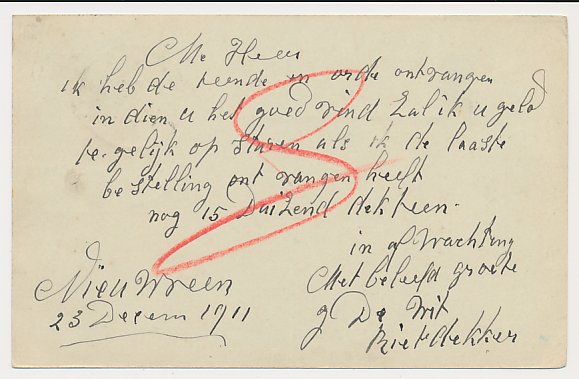 Me Heer
ik heb de teende in orde ontvangen
in dien u het goed vind Zal ik u geld
te. gelijk op sturen als ik de laaste
be stelling ont vangen heeft
nog 15 Duizend dekteen.
in af Wachting
Met beleefd groete
g De Wit
Rietdekker
Nieu Wveen
23 Decem 1911